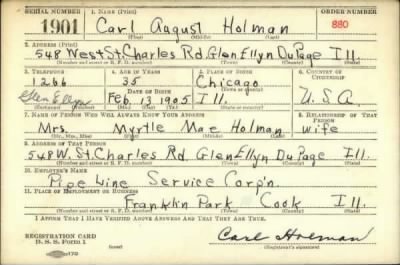 SERIAL NUMBER 1. NAME (Print) ORDER NUMBER
1901 Carl August Holman 880
(First) (Middle) (Last)
2. ADDRESS (Print)
548 West St Charles Rd. Glen Ellyn Du Page Ill.
(Number and street or R. F. D. number) (Town) (County) (State)
3. TELEPHONE 4. AGE IN YEARS 5. PLACE OF BIRTH 6. COUNTRY OF CITIZENSHIP
1266 35 Chicago
(Town or county)
Glen Ellyn DATE OF BIRTH
Feb. 13 1905 Ill. U.S.A.
(Exchange) (Number) (Mo.) (Day) (Yr.) (State or country)
7. NAME OF PERSON WHO WILL ALWAYS KNOW YOUR ADDRESS 8. RELATIONSHIP OF THAT PERSON
Mrs. Myrtle Mae Holman wife
(Mr., Mrs., Miss) (First) (Middle) (Last)
9. ADDRESS OF THAT PERSON
548 W. St. Charles Rd. Glen Ellyn Du Page Ill.
(Number and street or R. F. D. number) (Town) (County) (State)
10. EMPLOYER'S NAME
Pipe Line Service Corp'n.
11. PLACE OF EMPLOYMENT OR BUSINESS
Franklin Park Cook Ill.
(Number and street or R. F. D. number) (Town) (County) (State)
I AFFIRM THAT I HAVE VERIFIED ABOVE ANSWERS AND THAT THEY ARE TRUE.
REGISTRATION CARD
D. S. S. FORM 1 Carl Holman
(Registrant's signature)